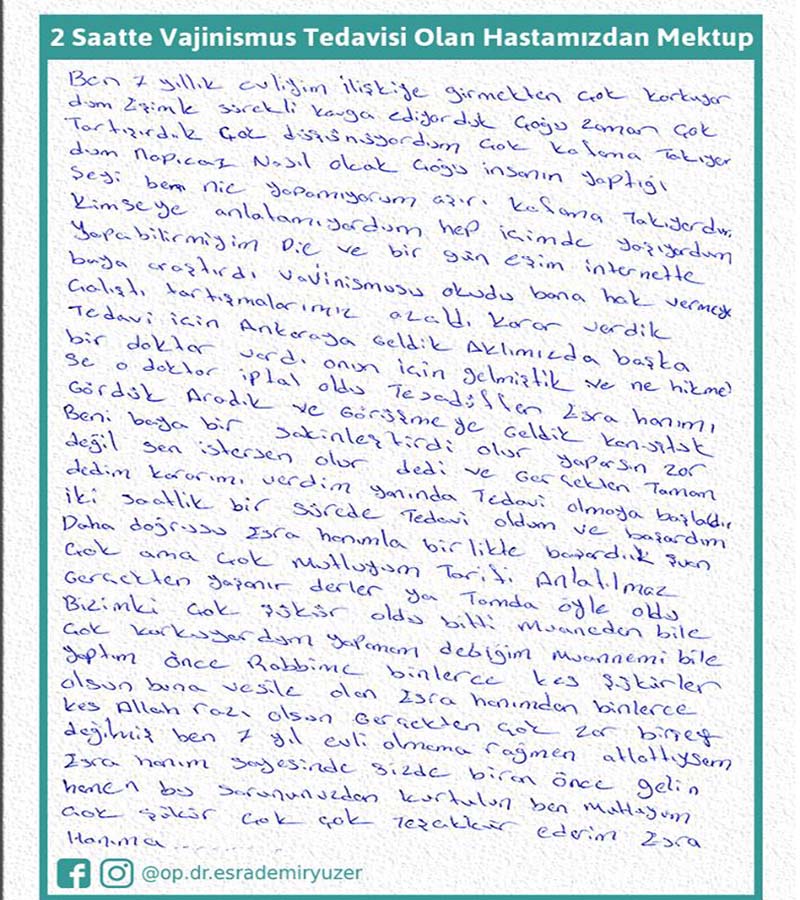 2 Saatte Vajinismus Tedavisi Olan Hastamızdan Mektup
Ben 7 yıllık evliyim ilişkiye girmekten çok korkuyor
dum Eşimle sürekli kavga ediyorduk Çoğu zaman çok
Tartışırdık Çok düşünüyordum Çok kafama Takıyor
dum Napıcaz Nasıl olcak Çoğu insanın yaptığı
Şeyi ben nie yapamıyorum aşırı kafama Takıyordum
Kimseye anlatamıyordum hep içimde yaşıyordum
Yapabilirmiyim Die ve bir gün eşim internette
baya araştırdı vajinismusu okudu bana hak vermeye
Çalıştı tartışmalarımız azaldı karar verdik
Tedavi için Ankaraya Geldik Aklımızda başka
bir doktor vardı onun için gelmiştik ve ne hikmet
se o doktor iptal oldu Tesadüffen Esra hanımı
Gördük Aradık ve Görüşmeye Geldik konuştuk
Beni baya bir sakinleştirdi olur yaparsın zor
değil sen istersen olur dedi ve Gerçekten Tamam
dedim kararımı verdim yanında Tedavi olmaya başladım
iki saatlik bir sürede Tedavi oldum ve başardım
Daha doğrusu Esra hanımla birlikte başardık şuan
Çok ama Çok Mutluyum Tarifi Anlatılmaz
Gerçekten yaşanır derler ya Tamda öyle oldu
Bizimki Çok şükür oldu bitti Muaneden bile
Çok korkuyordum yapamam debiğim Muannemi bile
yaptım önce Rabbime binlerce kes şükürler
olsun buna vesile olan Esra hanımdan binlerce
kes Allah razı olsun Gerçekten Çok zor birşey
değilmiş ben 7 yıl evli olmama rağmen atlattıysam
Esra hanım sayesinde sizde biran önce gelin
hemen bu sorununuzdan kurtulun ben Mutluyum
Çok şükür Çok Çok Teşekkür ederim Esra
Hanıma...........
@op.dr.esrademiryuzer